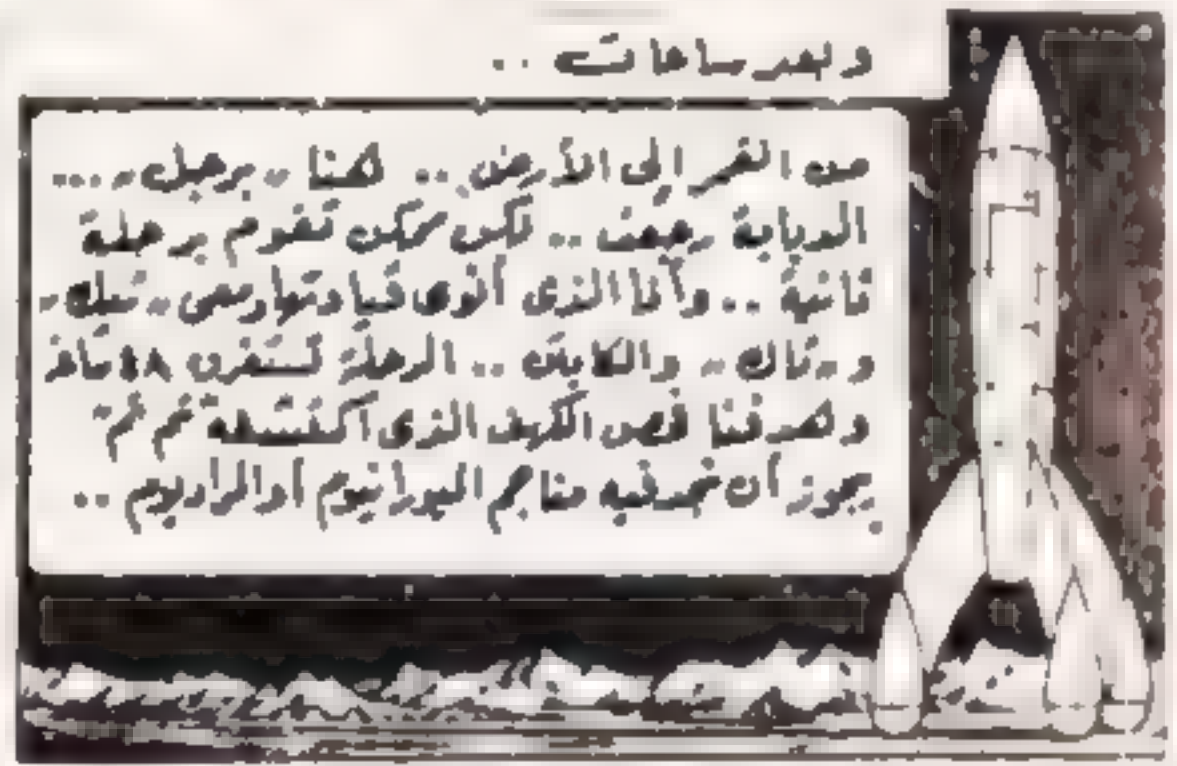 وبعد ساعات ..
من القمر إلى الأرض .. هنا " برجل " ...
الدبابة رجعت .. لكن ممكن تقوم برحلة
ثانية .. وأنا الذى أنوى قيادتها ومعى
و " تاك " والكابتن .. الرحلة تستغرق ٤٨ ساعة
وهدفنا فحص الكهف الذى اكتشفه تم تم
يجوز أن نجد فيه مناجم اليورانيوم أو الراديوم ..